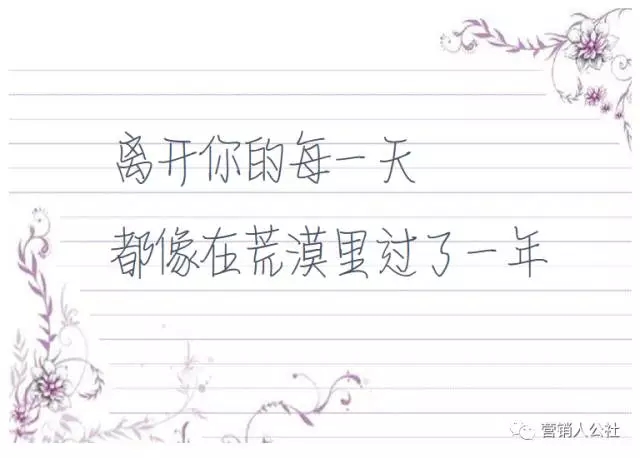 离开你的每一天
都像在荒漠里过了一年
营销人公社